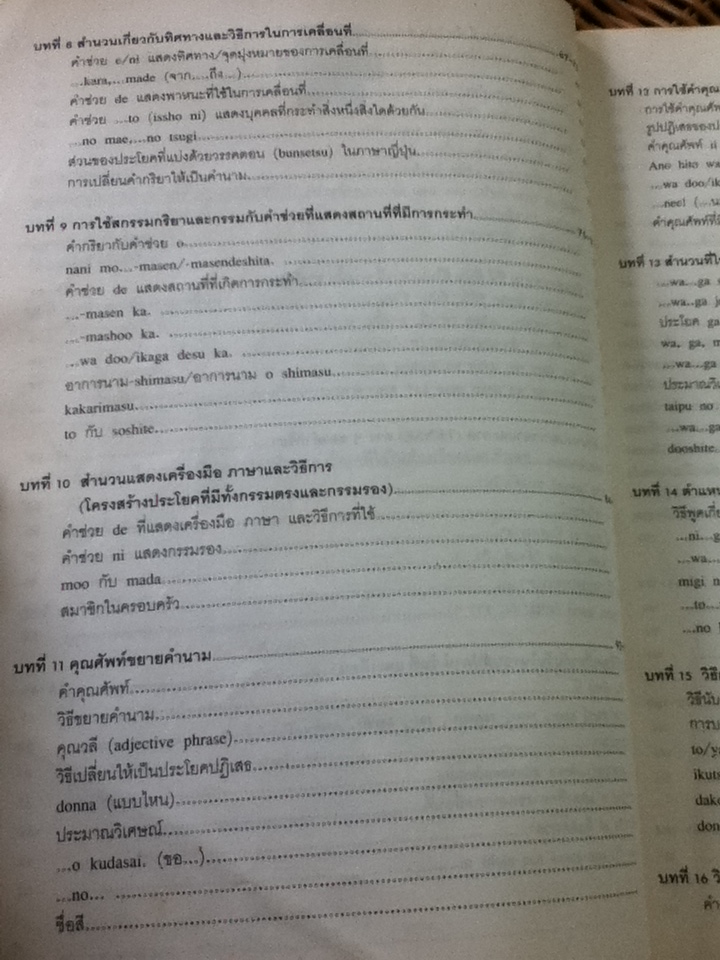 บทที่ 8 สำนวนเกี่ยวกับทิศทางและวิธีการในการเคลื่อนที่
คำช่วย e/ni แสดงทิศทาง/จุดมุ่งหมายของการเคลื่อนที่
...kara,...made (จาก....ถึง...)
คำช่วย de แสดงพาหนะที่ใช้ในการเคลื่อนที่
คำช่วย ...to (issho ni) แสดงบุคคลที่กระทำสิ่งหนึ่งสิ่งใดด้วยกัน
...no mae,...no tsugi
ส่วนของประโยคที่แบ่งด้วยวรรคตอน (bunsetsu) ในภาษาญี่ปุ่น
การเปลี่ยนคำกริยาให้เป็นคำนาม
บทที่ 9 การใช้สกรรมกริยาและกรรมกับคำช่วยที่แสดงสถานที่ที่มีการกระทำ
คำกริยากับคำช่วย o
nani mo...-masen/-masendeshita.
คำช่วย de แสดงสถานที่ที่เกิดการกระทำ
...-masen ka.
...-mashoo ka.
...wa doo/ikaga desu ka.
อาการนาม-shimasu/อาการนาม o shimasu
kakarimasu
to กับ soshite
บทที่ 10 สำนวนแสดงเครื่องมือ ภาษาและวิธีการ
(โครงสร้างประโยคที่มีทั้งกรรมตรงและกรรมรอง)
คำช่วย de ที่แสดงเครื่องมือ ภาษา และวิธีการที่ใช้
คำช่วย ni แสดงกรรมรอง
moo กับ mada
สมาชิกในครอบครัว
บทที่ 11 คุณศัพท์ขยายคำนาม
คำคุณศัพท์
วิธีขยายคำนาม
คุณวลี (adjective phrase)
วิธีเปลี่ยนให้เป็นประโยคปฏิเสธ
donna (แบบไหน)
ประมาณวิเศษณ์
...o kudasai. (ขอ...)
...no...
ชื่อสี
บทที่ 12 การใช้คำคุณ
การใช้คำคุณศัพ
รูปปฏิเสธของป
คำคุณศัพท์ ii
Ano hito wa
...wa doo/ik
...nee! (...น
คำคุณศัพท์ที่
บทที่ 13 สำนวนที่ใ
...wa...ga
...wa..ga j
ประโยค ga
wa, ga, m
...wa...ga
ประมาณวิเ
taipu no
...wa...ga
dooshite
บทที่ 14 ตำแหน
วิธีพูดเกี่
...ni...g
...wa...
migi n
...to...
...no
บทที่ 15 วิธี
วิธีนับ
การบ
to/ya
ikuts
dake
don
บทที่ 16 วิ
คำ